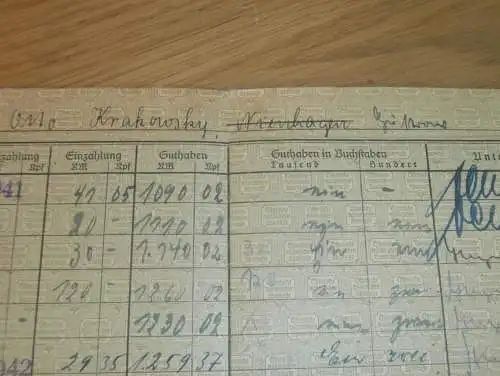 Otto Krakowsky, Nienhagen Güstrow
zahlung Einzahlung Guthaben Guthaben in Buchstaben Unte
Rpf RM Rpf RM Rpf Tausend Hundert
941 41 05 1090 02 ein -
20 - 1110 02 ein ein
30 - 1.140 02 ein ein
120 - 1260 02 ein zwei
- 1230 02 ein zwei
942 29 35 1259 37 Ein zwei